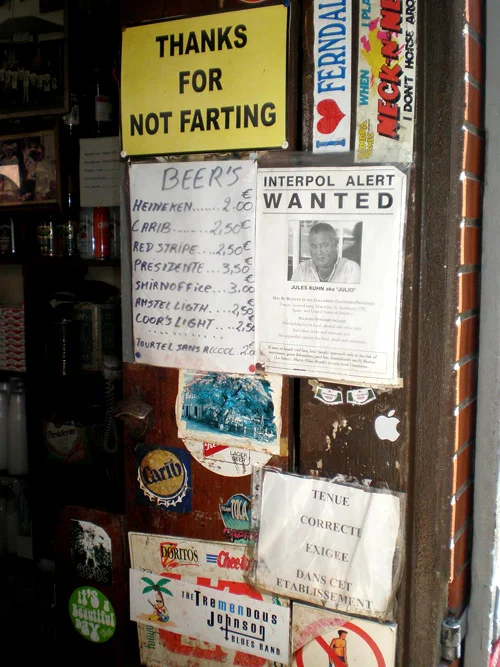 THANKS
FOR
NOT FARTING
I FERNDAL
WHEN I PLA
NECK-N-NE
I DON'T HORSE ARO
BEER'S
HEINEKEN......2.00€
CARIB......2,50€
RED STRIPE...2,50€
PRESIDENTE...3,50€
SMIRNOFFICE...3.00€
AMSTEL LIGTH....2,50€
COOR'S LIGHT.....2,5
TOURTEL SANS ALCOOL.2
INTERPOL ALERT
WANTED
JULES KUHN aka "JULIO"
LAGER
BEER
Carib
TENUE
CORRECTE
EXIGEE
DANS CET
ETABLISSEMENT
DORITOS
Chee
it's a
beautiful
DAY
THE TREMENDOUS
JOHNSON
BLUES BAND